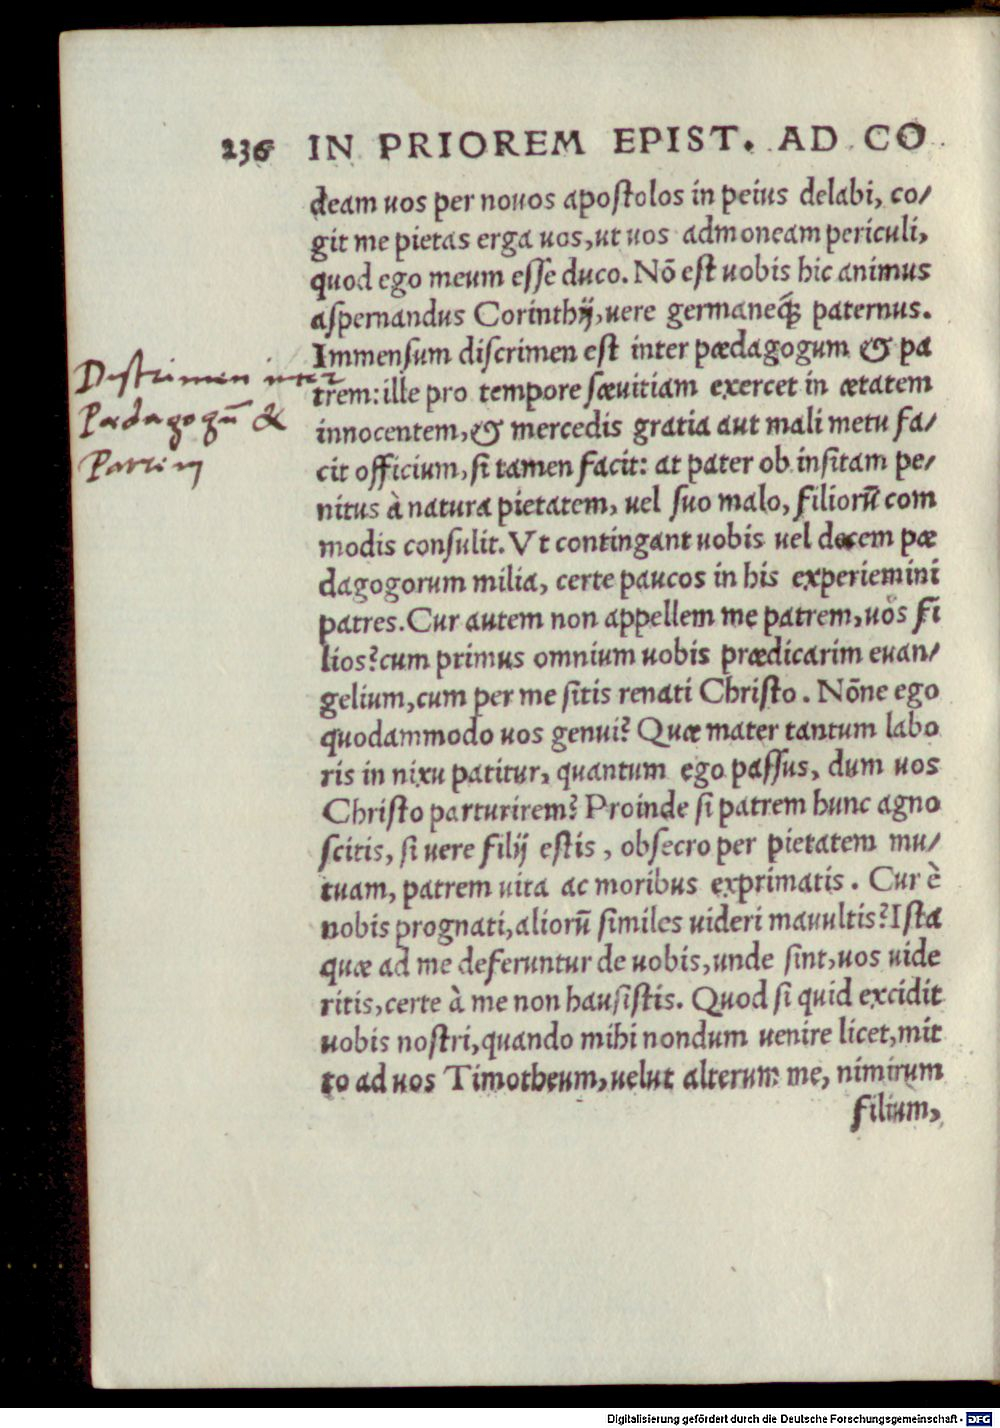 236 IN PRIOREM EPIST. AD CO
deam uos per nouos apostolos in peius delabi, co/
git me pietas erga uos, ut uos admoneam periculi,
quod ego meum esse duco. Nō est uobis hic animus
aspernandus Corinthij, uere germaneq́; paternus.
Immensum discrimen est inter pædagogum & pa
trem: ille pro tempore sæuitiam exercet in ætatem
innocentem, & mercedis gratia aut mali metu fa/
cit officium, si tamen facit: at pater ob insitam pe/
nitus à natura pietatem, uel suo malo, filiorū com
modis consulit. Vt contingant uobis uel decem pæ
dagogorum milia, certe paucos in his experiemini
patres. Cur autem non appellem me patrem, uos fi
lios? cum primus omnium uobis prædicarim euan/
gelium, cum per me sitis renati Christo. Nōne ego
quodammodo uos genui? Quæ mater tantum labo
ris in nixu patitur, quantum ego passus, dum uos
Christo parturirem? Proinde si patrem hunc agno
scitis, si uere filij estis, obsecro per pietatem mu/
tuam, patrem uita ac moribus exprimatis. Cur è
nobis prognati, aliorū similes uideri mauultis? Ista
quæ ad me deferuntur de uobis, unde sint, uos uide
ritis, certe à me non hausistis. Quod si quid excidit
uobis nostri, quando mihi nondum uenire licet, mit
to ad uos Timotheum, uelut alterum me, nimirum
filium,
Discrimen inter
Pædagogū &
Patrem
Digitalisierung gefördert durch die Deutsche Forschungsgemeinschaft - DFG